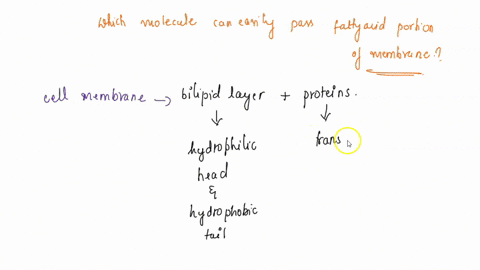 which molecule can easily pass fatty acid portion
of membrane?
cell membrane → bilipid layer + proteins.
↓ ↓
hydrophilic trans
head
&
hydrophobic
tail